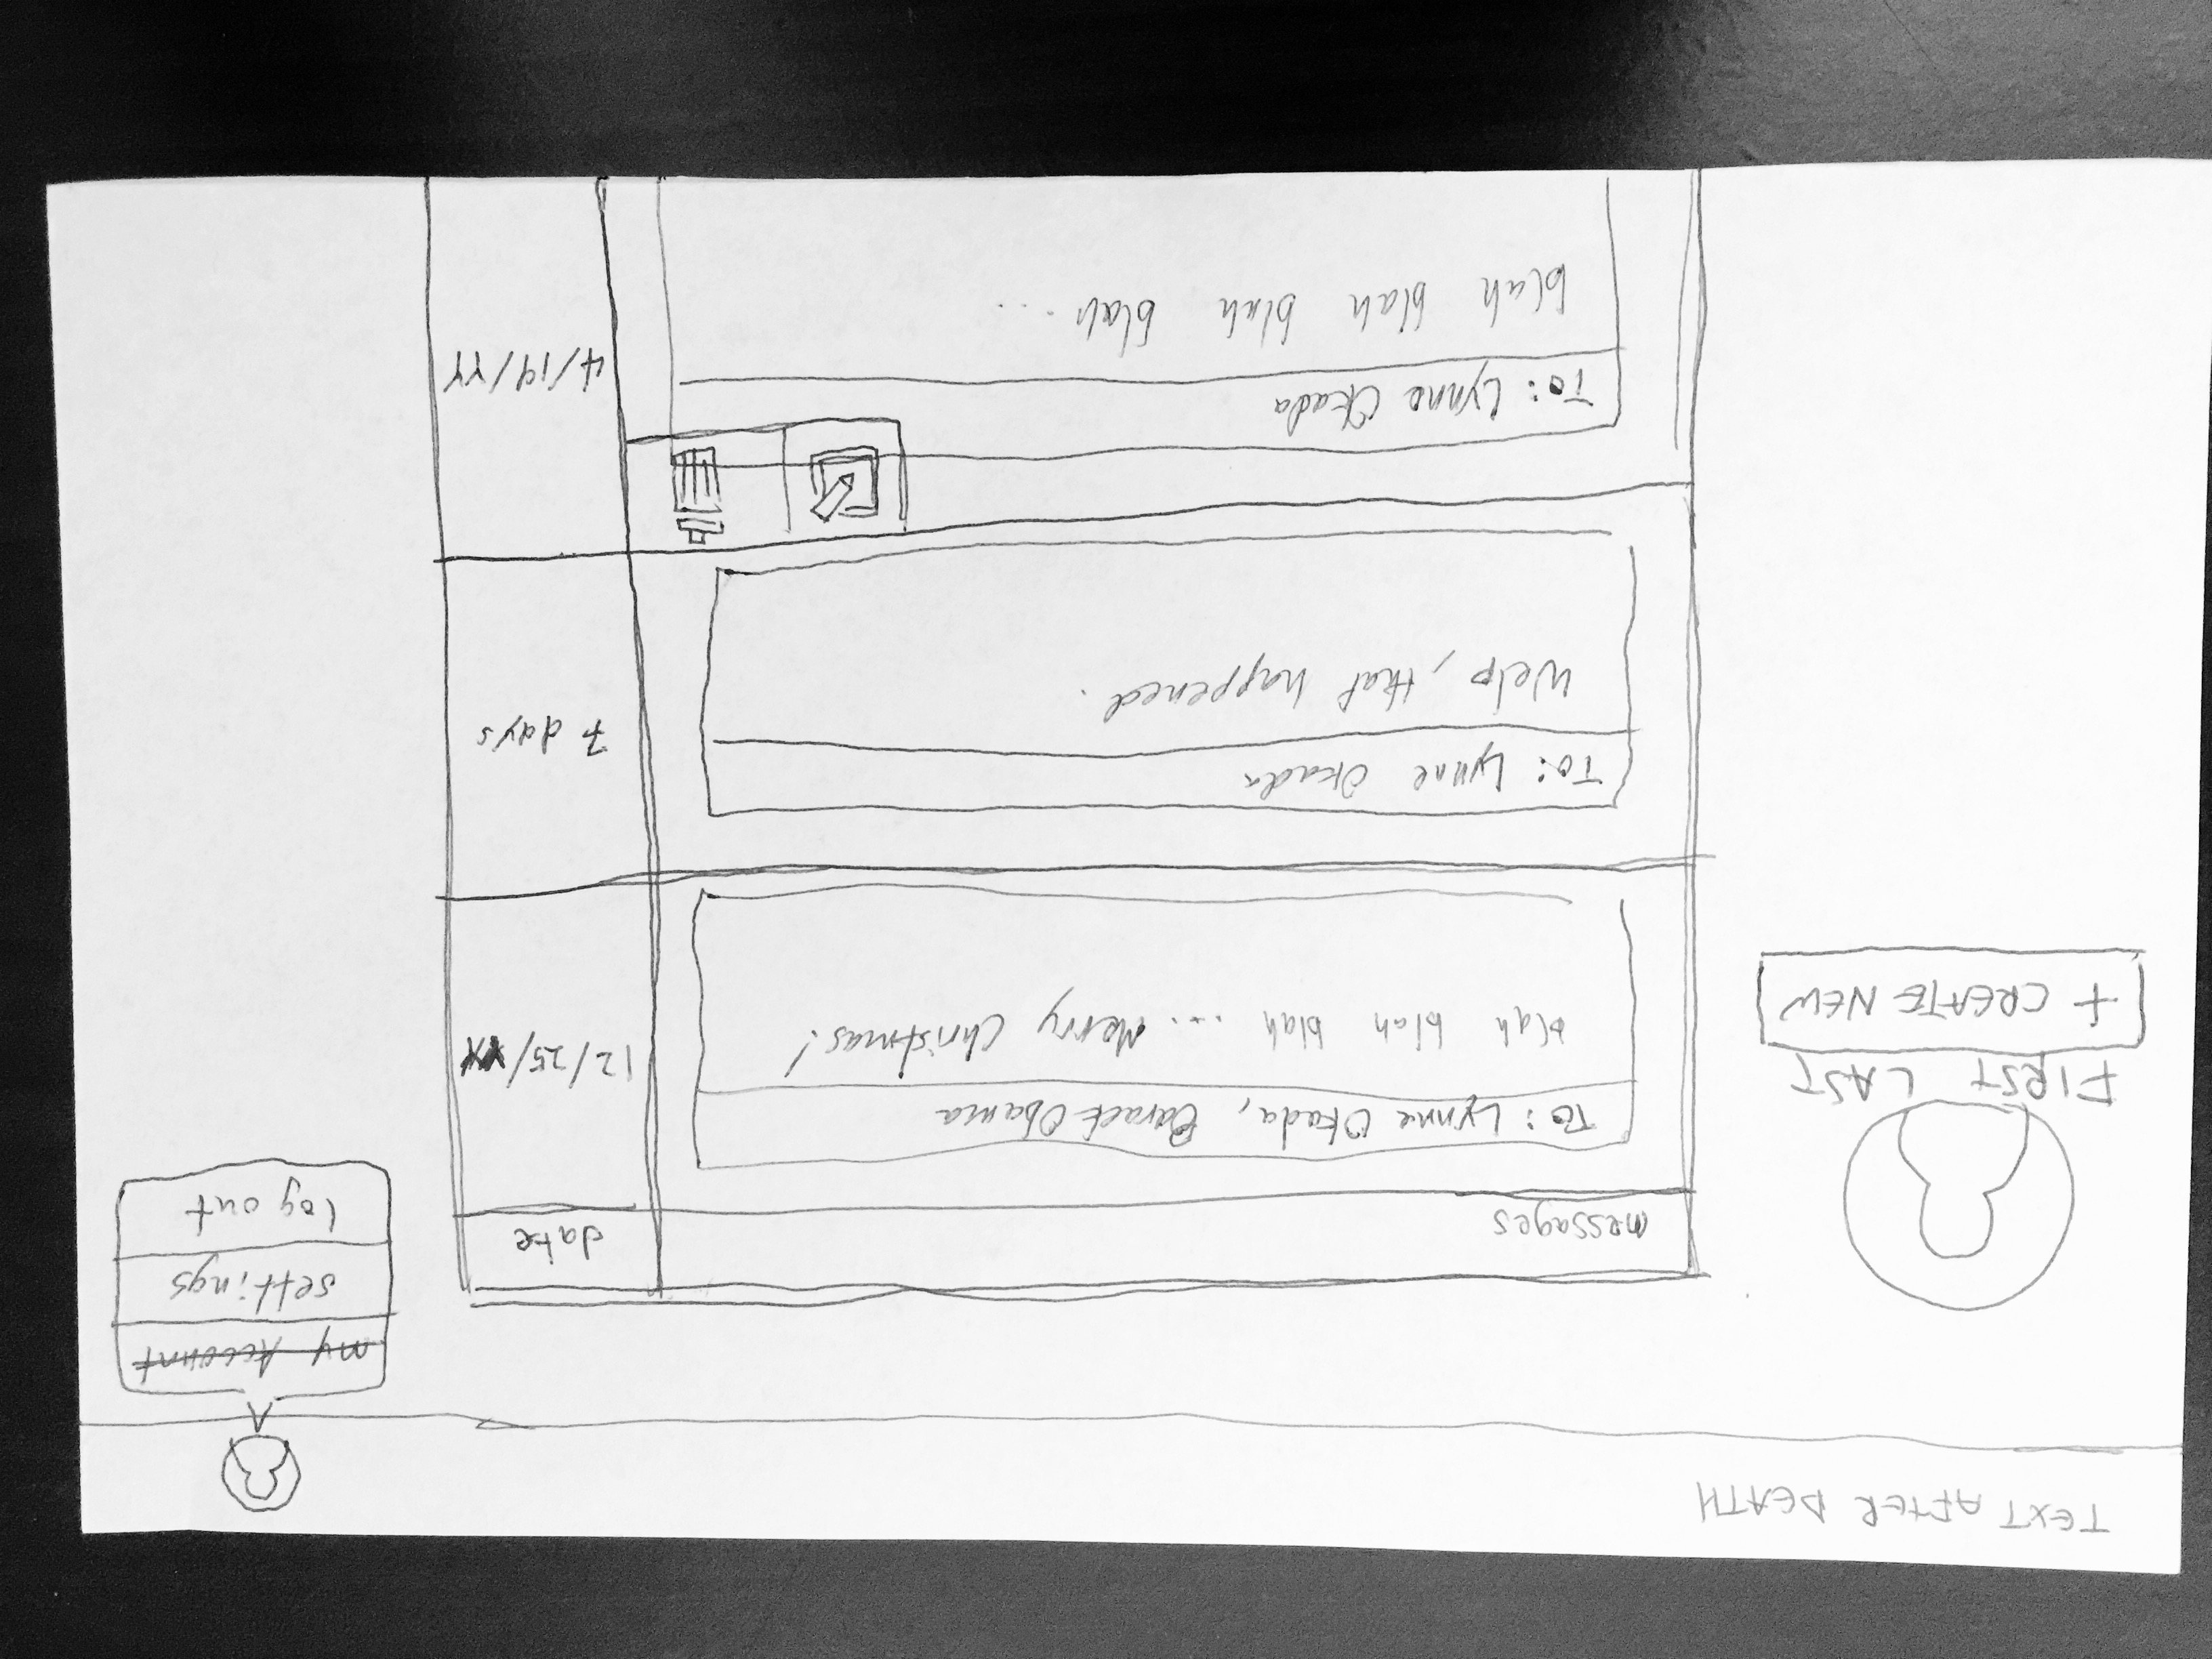 TEXT AFTER DEATH
my Account
settings
log out
FIRST LAST
+ CREATE NEW
messages
date
To: Lynne Okada, Barack Obama
blah blah blah ... Merry Christmas!
12/25/
To: Lynne Okada
Welp, that happened.
7 days
To: Lynne Okada
blah blah blah blah ...
4/19/YY